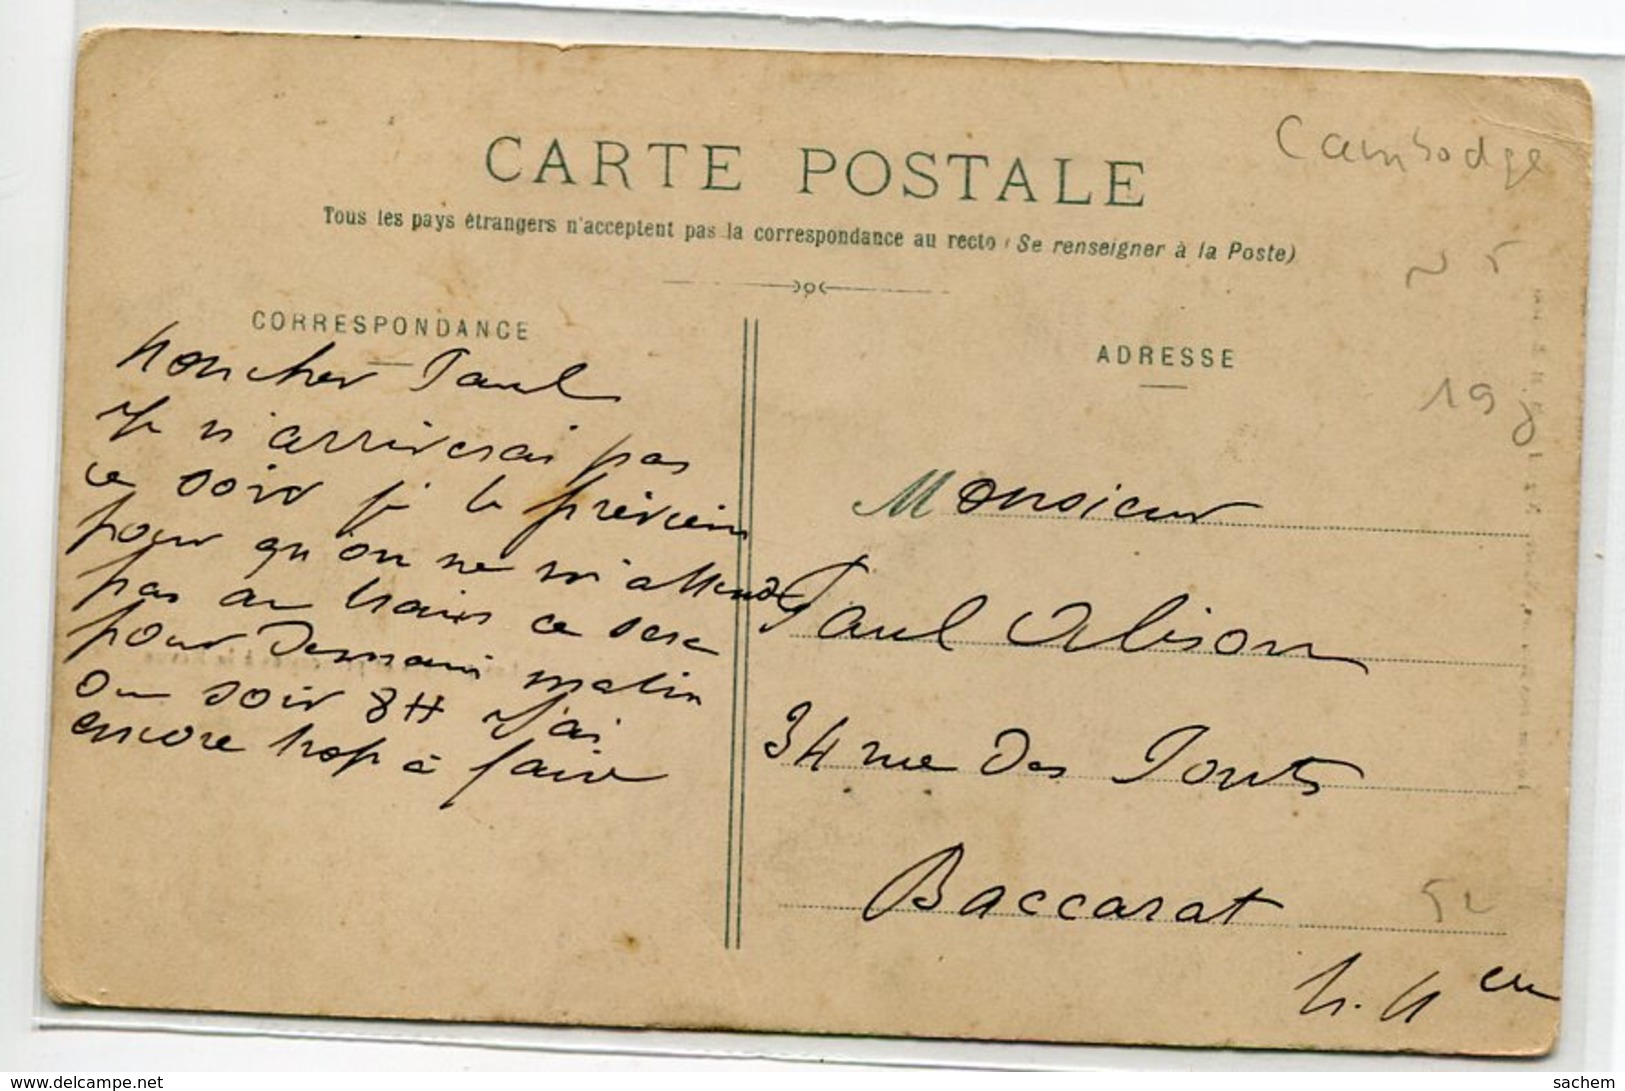 CARTE POSTALE
Tous les pays étrangers n'acceptent pas la correspondance au recto (Se renseigner à la Poste)
Cambodge
CORRESPONDANCE
ADRESSE
Moncher Paul
Je n'arriverai pas
ce soir je te préviens
pour qu'on ne m'attend
pas au train ce sera
pour Demain matin
ou soir 8H J'ai
encore trop à faire
Monsieur
Paul Alison
34 rue Des Ponts
Baccarat
19
52
www.delcampe.net
sachem